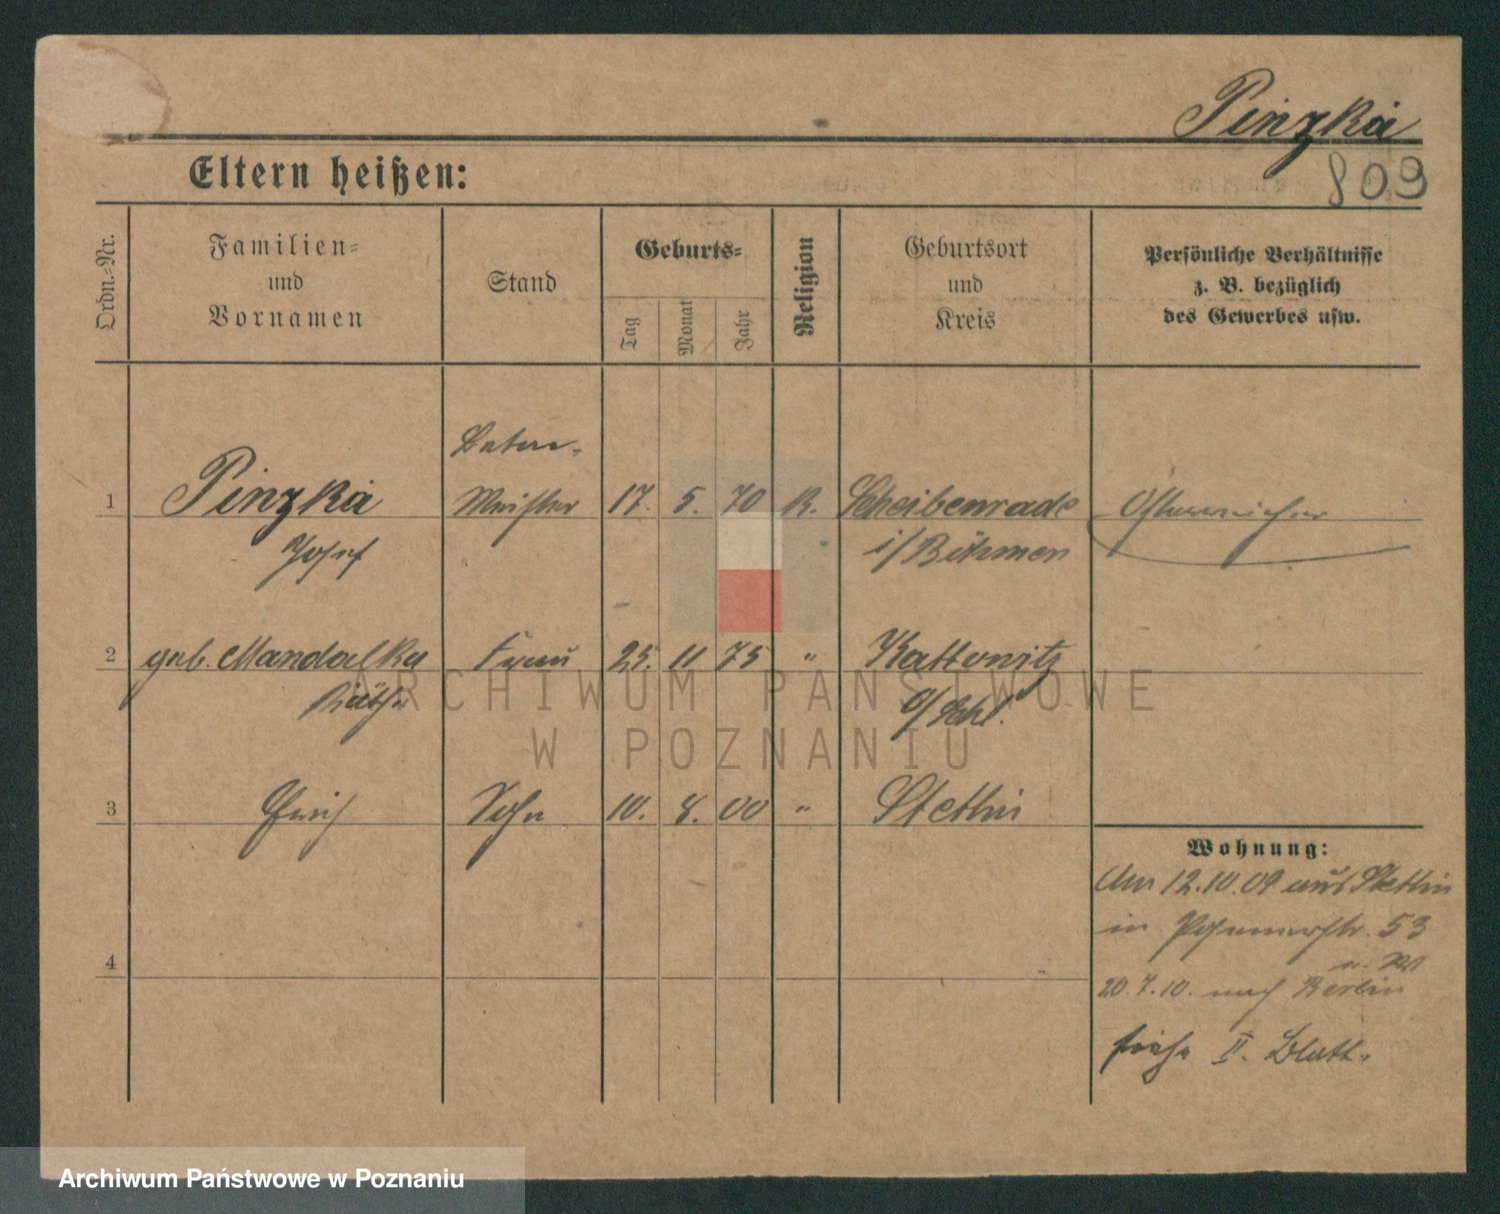 Pinzka
809
Eltern heißen:
Ordn.-Nr.
Familien-
und
Vornamen
Stand
Geburts-
Tag
Monat
Jahr
Religion
Geburtsort
und
Kreis
Persönliche Verhältnisse
z. B. bezüglich
des Gewerbes usw.
1 Pinzka Meister 17. 5. 70 K. Scheibenrade Österreicher
Josef i/Böhmen
2 geb. Mandalka Frau 25. 11 75 " Kattowitz
Käthe O/Schl.
3 Erich Sohn 10. 8. 00 " Stettin
4
Wohnung:
Am 12.10.09 aus Stettin
in Posenerstr. 53
20.7.10. nach Berlin
siehe II. Blatt.
ARCHIWUM PAŃSTWOWE
W POZNANIU
Archiwum Państwowe w Poznaniu